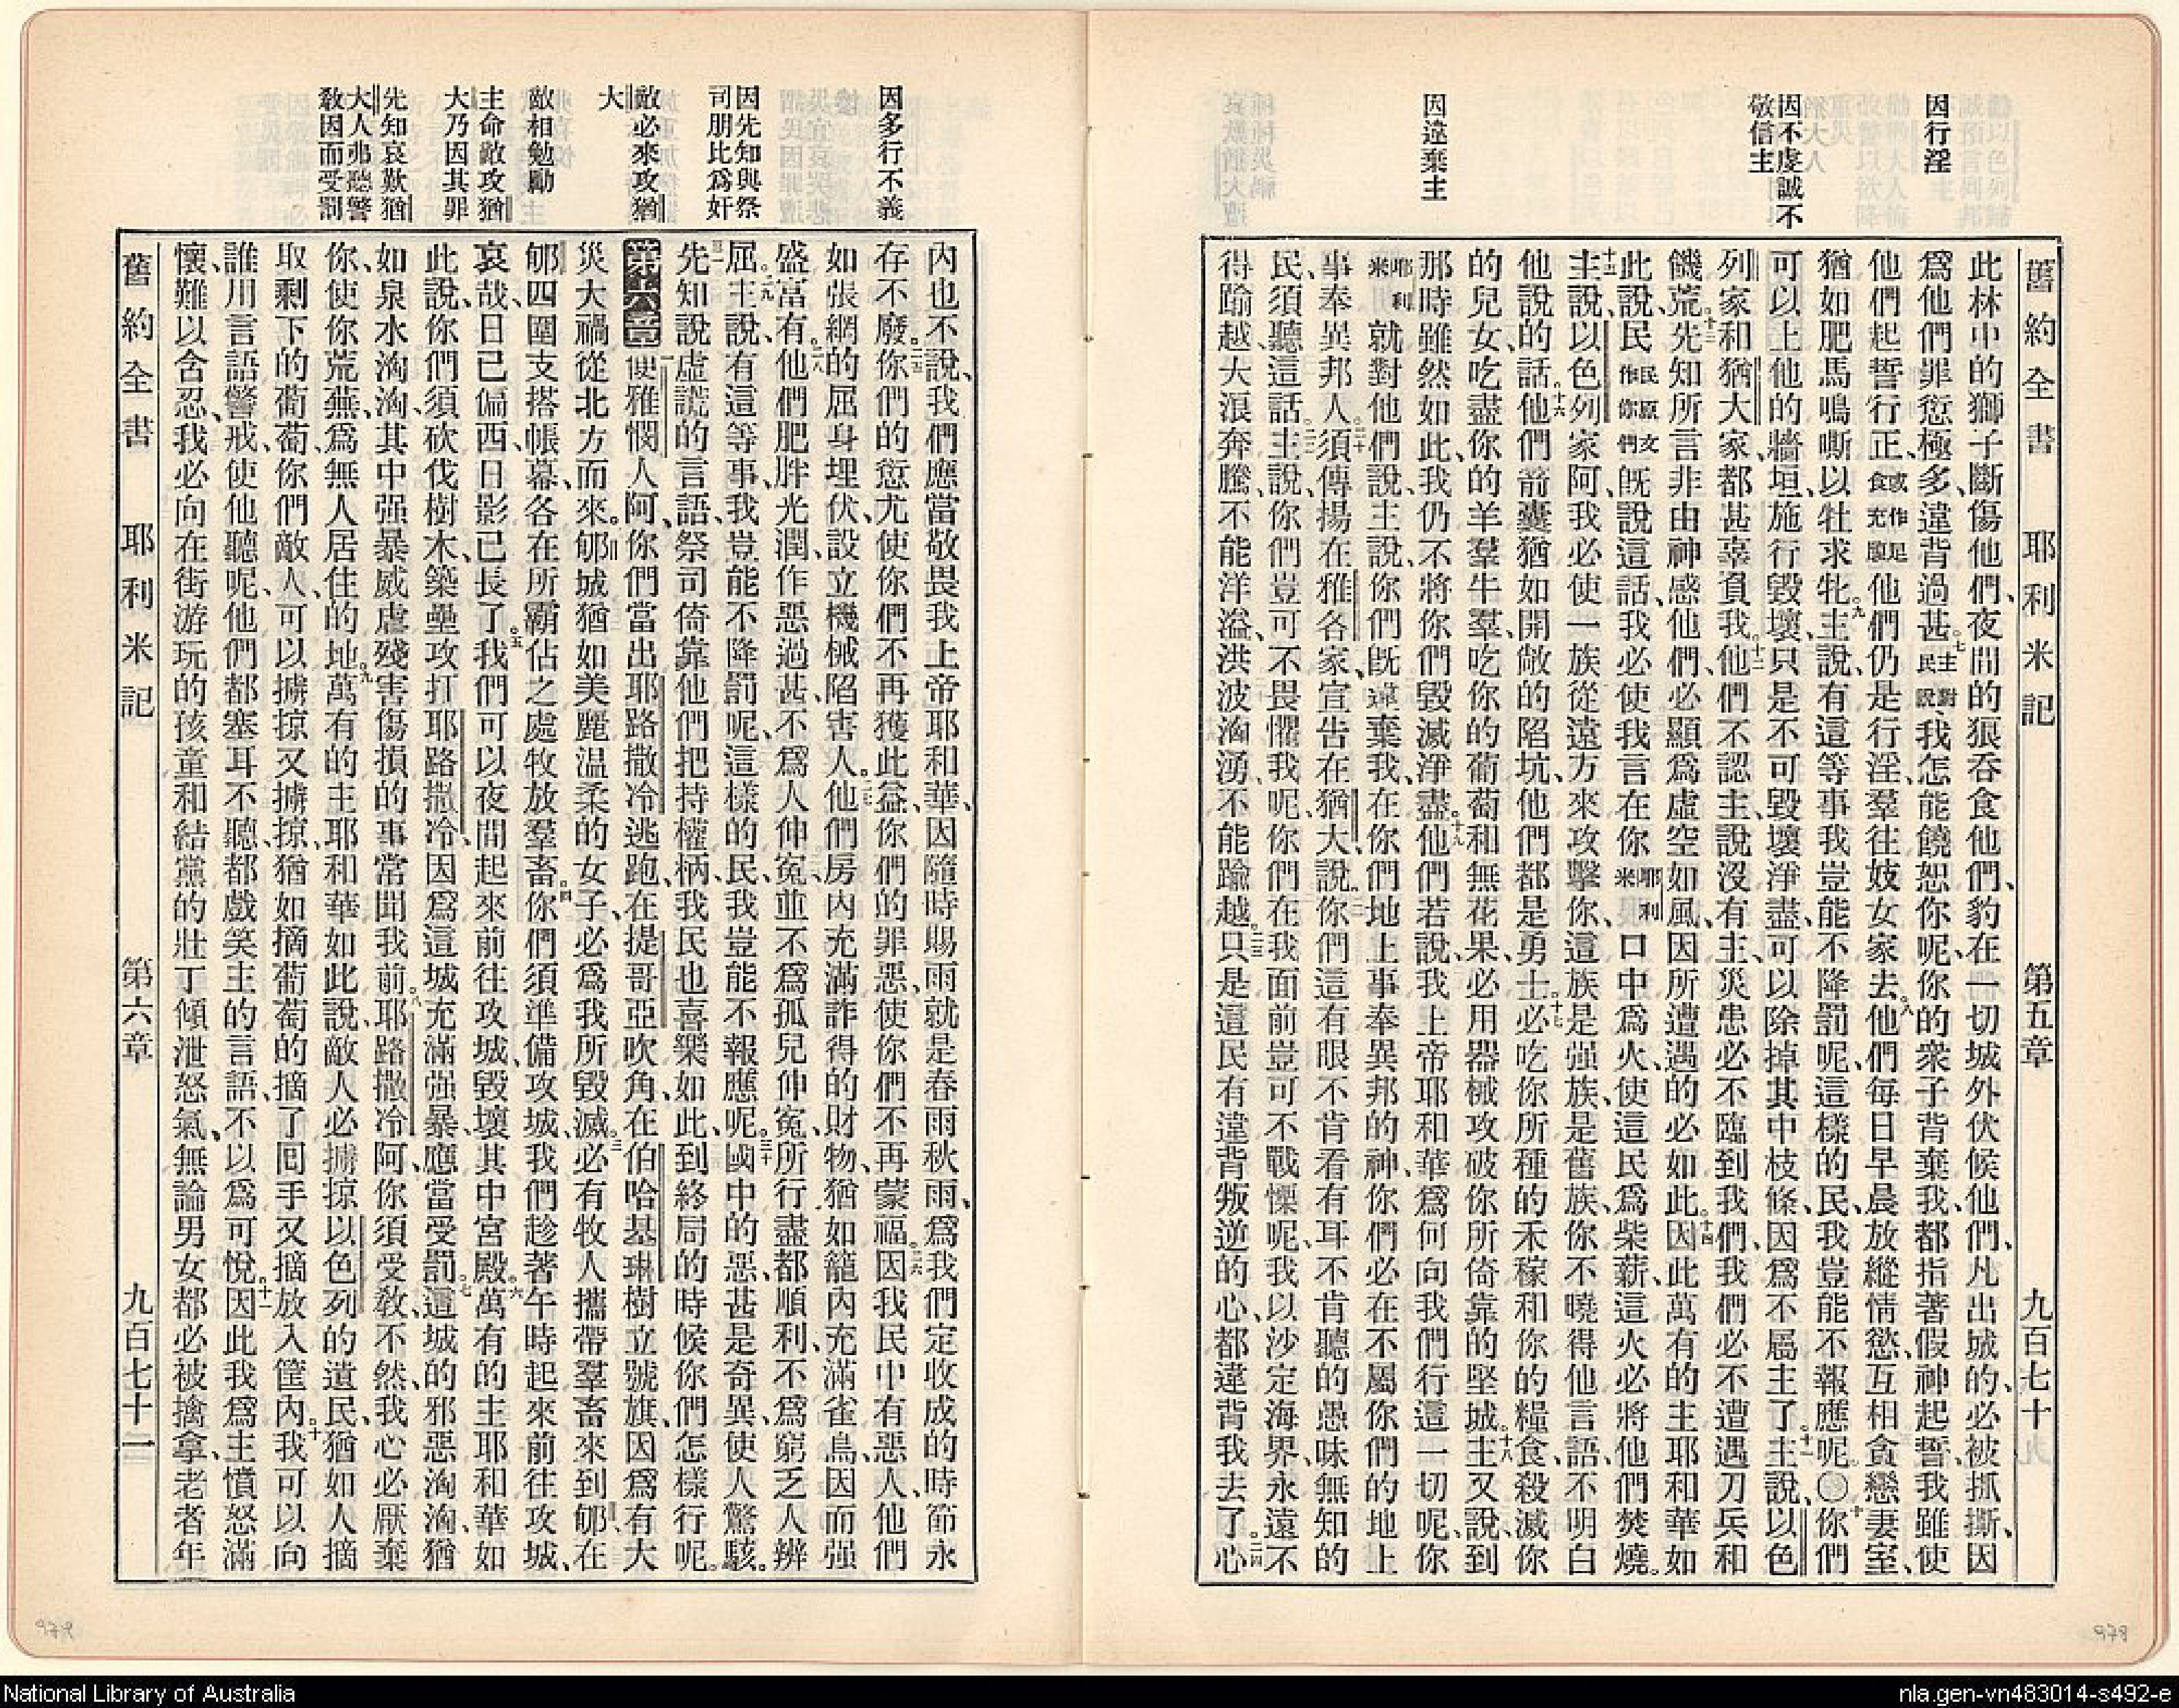 因行淫
因不虔誠不
敬信主
因違棄主
舊約全書 耶利米記 第五章 九百七十
此林中的獅子斷傷他們、夜間的狼吞食他們、豹在一切城外伏候他們、凡出城的、必被抓撕、因
爲他們罪愆極多、違背過甚。七主對民說、我怎能饒恕你呢、你的衆子背棄我、都指著假神起誓、我雖使
他們起誓行正、或作足食充腹他們仍是行淫、羣往妓女家去。八他們每日早晨放縱情慾、互相貪戀妻室、
猶如肥馬鳴嘶、以牡求牝。九主說、有這等事、我豈能不降罰呢、這樣的民、我豈能不報應呢。〇十你們
可以上他的牆垣、施行毀壞、只是不可毀壞淨盡、可以除掉其中枝條、因爲不屬主了。十一主說、以色
列家和猶大家、都甚辜負我。十二他們不認主、說沒有主、災患必不臨到我們、我們必不遭遇刀兵和
饑荒。十三先知所言、非由神感、他們必顯爲虛空如風、因所遭遇的必如此。十四因此萬有的主耶和華如
此說、民民原文作你們旣說這話、我必使我言在你耶利米口中爲火、使這民爲柴薪、這火必將他們焚燒。
十五主說、以色列家阿、我必使一族從遠方來攻擊你、這族是强族、是舊族、你不曉得他言語、不明白
他說的話。十六他們箭囊猶如開敞的陷坑、他們都是勇士。十七必吃你所種的禾稼和你的糧食、殺滅你
的兒女、吃盡你的羊羣牛羣、吃你的葡萄和無花果、必用器械攻破你所倚靠的堅城。十八主又說、到
那時雖然如此、我仍不將你們毀滅淨盡。十九他們若說、我上帝耶和華爲何向我們行這一切呢、你
耶利米就對他們說、主說、你們旣違棄我、在你們地上事奉異邦的神、你們必在不屬你們的地上
事奉異邦人。二十須傳揚在雅各家、宣告在猶大說。二一你們這有眼不肯看、有耳不肯聽的愚昧無知的
民、須聽這話。二二主說、你們豈可不畏懼我呢、你們在我面前豈可不戰慄呢、我以沙定海界、永遠不
得踰越、大浪奔騰、不能洋溢、洪波洶湧、不能踰越。二三只是這民有違背叛逆的心、都違背我去了。二四心
因多行不義
因先知與祭
司朋比爲奸
敵必來攻猶
大
敵相勉勵
主命敵攻猶
大乃因其罪
先知哀歎猶
大人弗聽警
敎因而受罰
內也不說、我們應當敬畏我上帝耶和華、因隨時賜雨、就是春雨秋雨、爲我們定收成的時節、永
存不廢。二五你們的愆尤、使你們不再獲此益、你們的罪惡、使你們不再蒙福。二六因我民中有惡人、他們
如張網的屈身埋伏、設立機械陷害人。二七他們房內充滿詐得的財物、猶如籠內充滿雀鳥、因而强
盛富有。二八他們肥胖光潤、作惡過甚、不爲人伸寃、並不爲孤兒伸寃、所行盡都順利、不爲窮乏人辨
屈。二九主說、有這等事、我豈能不降罰呢、這樣的民、我豈能不報應呢。三十國中的惡、甚是奇異、使人驚駭。
三一先知說虛謊的言語、祭司倚靠他們把持權柄、我民也喜樂如此、到終局的時候、你們怎樣行呢。
第六章 一便雅憫人阿、你們當出耶路撒冷逃跑、在提哥亞吹角、在伯哈基琳樹立號旗、因爲有大
災大禍從北方而來。二郇城猶如美麗温柔的女子、必爲我所毀滅。三必有牧人攜帶羣畜來到郇、在
郇四圍支搭帳幕、各在所霸佔之處牧放羣畜。四你們須準備攻城、我們趁著午時起來前往攻城、
哀哉、日已偏西、日影已長了。五我們可以夜間起來、前往攻城、毀壞其中宮殿。六萬有的主耶和華如
此說、你們須砍伐樹木、築壘攻打耶路撒冷、因爲這城充滿强暴、應當受罰。七這城的邪惡洶洶、猶
如泉水洶洶、其中强暴威虐殘害傷損的事、常聞我前。八耶路撒冷阿、你須受敎、不然、我心必厭棄
你、使你荒蕪、爲無人居住的地。九萬有的主耶和華如此說、敵人必擄掠以色列的遺民、猶如人摘
取剩下的葡萄、你們敵人、可以擄掠又擄掠、猶如摘葡萄的摘了、囘手又摘、放入筐內。十我可以向
誰用言語警戒、使他聽呢、他們都塞耳不聽、都戲笑主的言語、不以爲可悅。十一因此我爲主憤怒滿
懷、難以含忍、我必向在街游玩的孩童和結黨的壯丁傾泄怒氣、無論男女、都必被擒拿、老者年
舊約全書 耶利米記 第六章 九百七十一
979
978
National Library of Australia
nla.gen-vn483014-s492-e